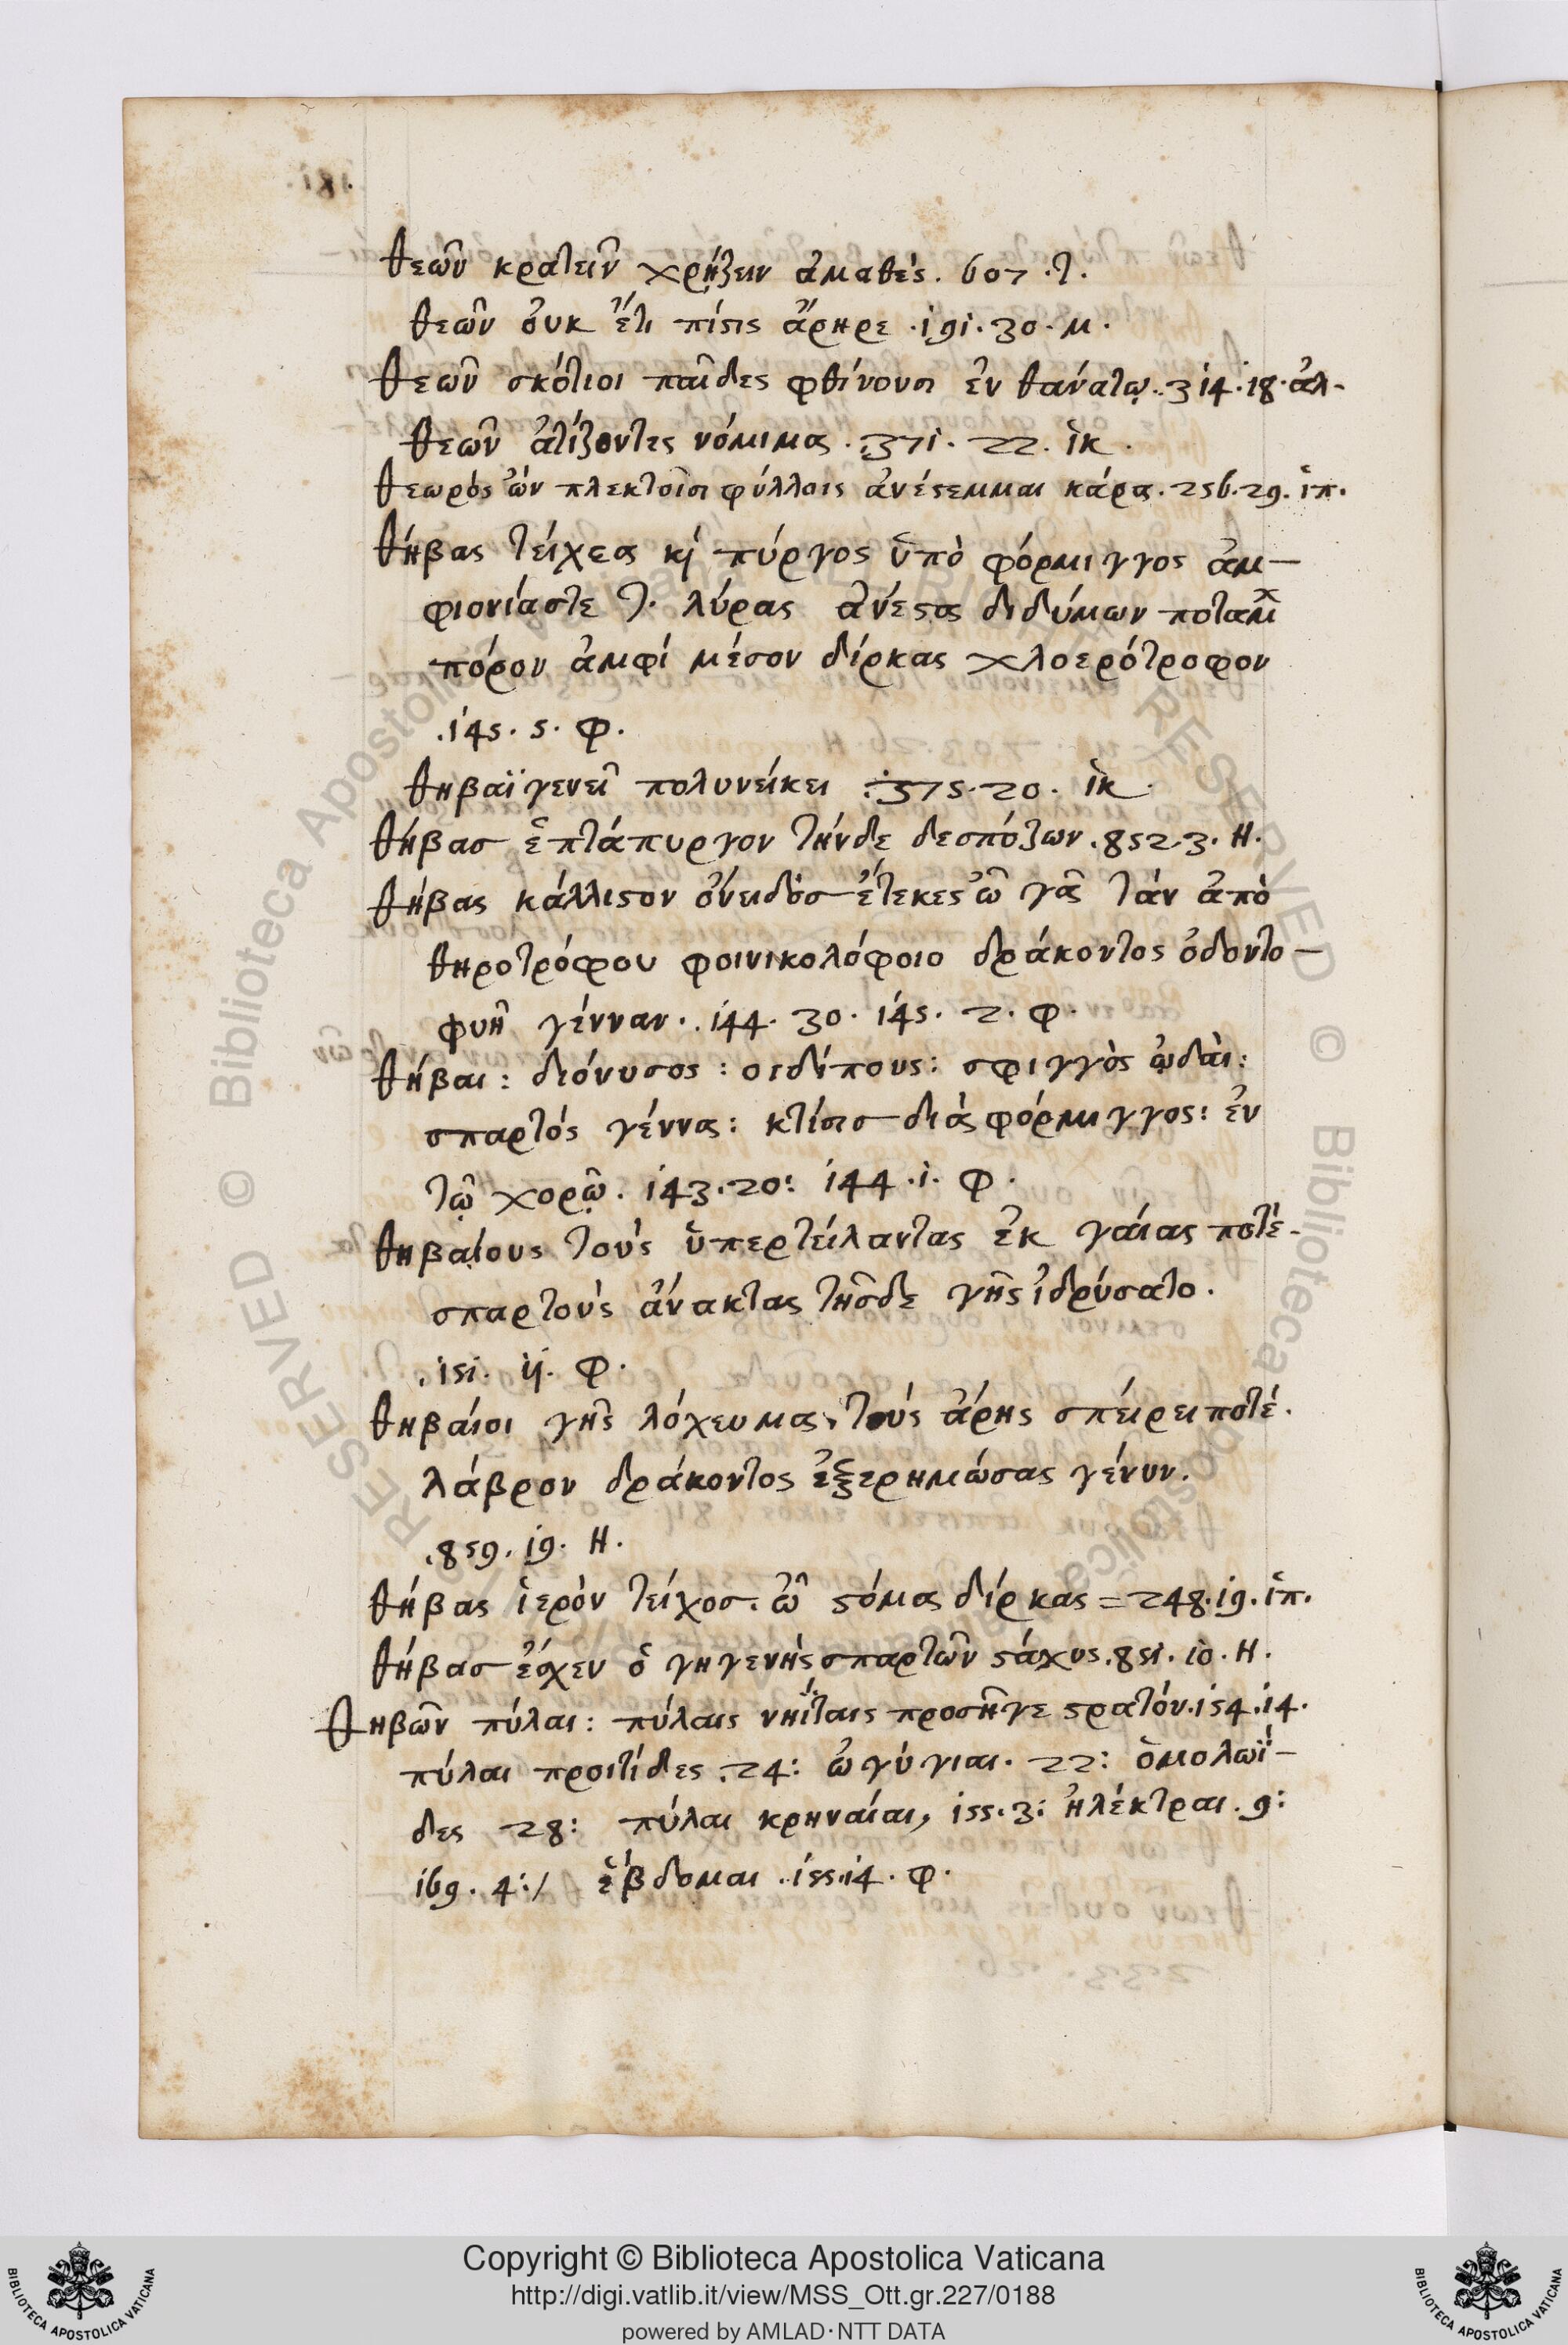 θεῶν κρατεῖν χρῄζειν ἀμαθές. 607 .τ.
θεῶν οὐκ ἔτι πίστις ἄρηρε .191. 30. μ.
θεῶν σκότιοι παῖδες φθίνουσι ἐν θανάτῳ. 314. 18. ἀλ-
θεῶν ἀτίζοντες νόμιμα. 371. 22. ἱκ.
θεωρὸς ὢν πλεκτοῖσι φύλλοις ἀνέστεμμαι κάρα. 256. 29. ἱπ.
θήβας τείχεα κὶ πύργος ὑπὸ φόρμιγγος ἀμ-
φιονίας τε τ. λύρας ἀνέστας διδύμων ποταμ
πόρον ἀμφί μέσον δίρκας χλοερότροφον
.145. 5. φ.
θηβαϊγενεῖ πολυνείκει .375. 20. ἱκ.
θήβασ ἑπτάπυργον τήνδε δεσπόζων. 852. 3. Η.
θήβας κάλλιστον ὄνειδοσ ἔτεκες ὦ γᾶ τάν ἀπὸ
θηροτρόφου φοινικολόφοιο δράκοντος ὀδοντο-
φυῆ γένναν. .144. 30. 145. 2. φ.
θήβαι: διόνυσος: οιδίπους: σφιγγὸς ᾠδὰι:
σπαρτός γέννα: κτίσισ διὰ φόρμιγγος: ἐν
τῷ χορῷ. 143. 20: 144. 1. φ.
θηβαίους τοὺς ὑπερτείλαντας ἐκ γαίας ποτὲ-
σπαρτοὺς ἄνακτας τῆσδε γῆς ἱδρύσατο.
.151. 11. φ.
θηβαίοι γῆς λόχευμα, τοὺς ἄρης σπείρει ποτέ.
λάβρον δράκοντος ἐξερημώσας γένυν.
.859. 19. Η.
θήβας ἱερὸν τείχοσ. ὦ στόμα δίρκας = 248. 19. ἱπ.
θήβασ ἔσχεν ὁ γηγενὴς σπαρτῶν στάχυς. 851. 10. Η.
Θηβῶν πύλαι: πύλαις νηΐταις προσῆγε στρατόν. 154. 14.
πύλαι προιτίδες .24: ὠγύγιαι. 22: ὁμολωΐ-
δες 28: πύλαι κρηναίαι, 155. 3: ἠλέκτραι. 9:
169. 4:/ ἕβδομαι .155. 14. φ.
Copyright © Biblioteca Apostolica Vaticana
http://digi.vatlib.it/view/MSS_Ott.gr.227/0188
powered by AMLAD·NTT DATA